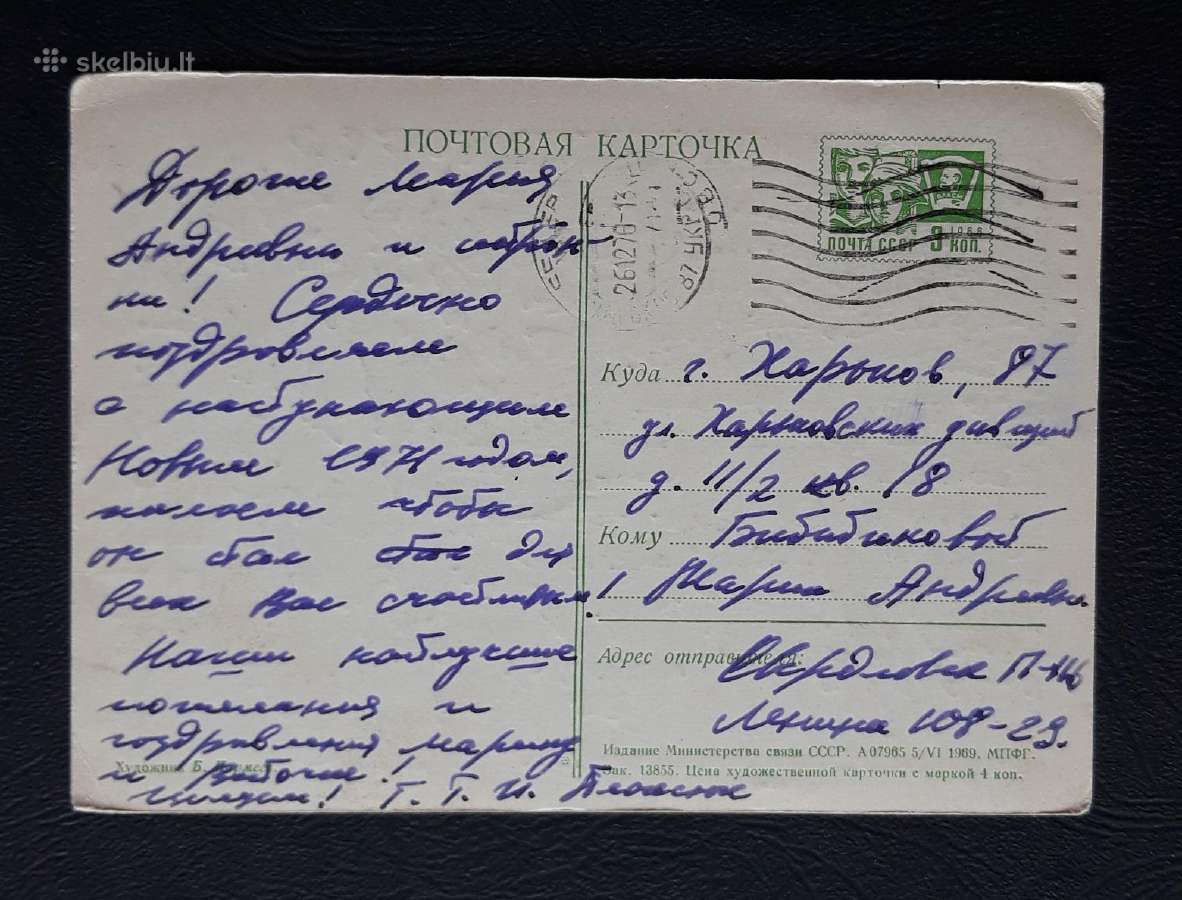 skelbiu.lt
ПОЧТОВАЯ КАРТОЧКА
ПОЧТА СССР 3 КОП.
1966
261270-13
Дорогие Мария
Андреевна и
Сердечно
поздравляем
с наступающим
Новым 1971 годом,
желаем чтобы
он стал для
всех вас счастливым!
Наши наилучшие
пожелания и
поздравления
и
Целуем! Г. Т. И.
Художник Б.
Куда г. Харьков, 97
ул. Харьковских дивизий
д. 11/2 кв. 18
Кому Бибибиновой
Марии Андреевне
Адрес отправителя: Свердловск
Ленина 108-23.
Издание Министерства связи СССР. А 07965 5/VI 1969. МПФГ.
Зак. 13855. Цена художественной карточки с маркой 4 коп.